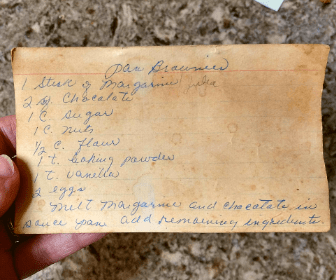 Pan Brownies
1 Stick of Margarine
2 sq. Chocolate
1 C. Sugar
1 C. Nuts
1/2 C. Flour
1 t. baking powder
1 t. Vanilla
2 eggs
Melt Margarine and chocolate in
sauce pan add remaining ingredients